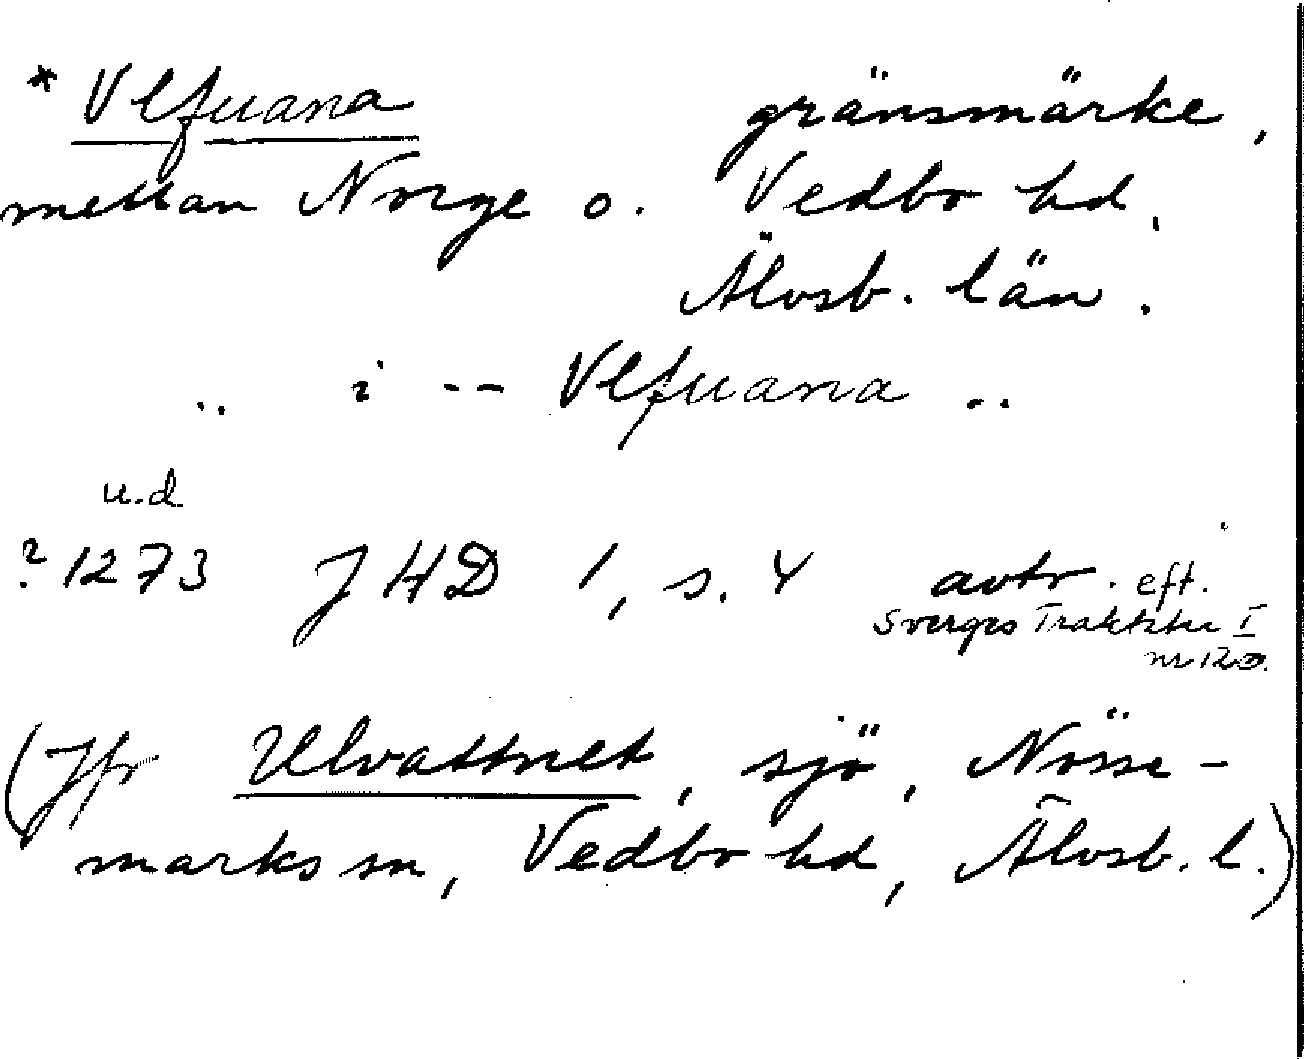 * Vlfuana gränsmärke,
mellan Norge o. Vedbo hd,
Älvsb. län.
.. i -- Vlfuana ..
u.d
? 1273 JHD 1, s. 4 avtr. eft.
Sverges Traktater I
nr 120.
(Jfr Ulvattnet, sjö, Nösse-
marks sn, Vedbo hd, Älvsb. l.)